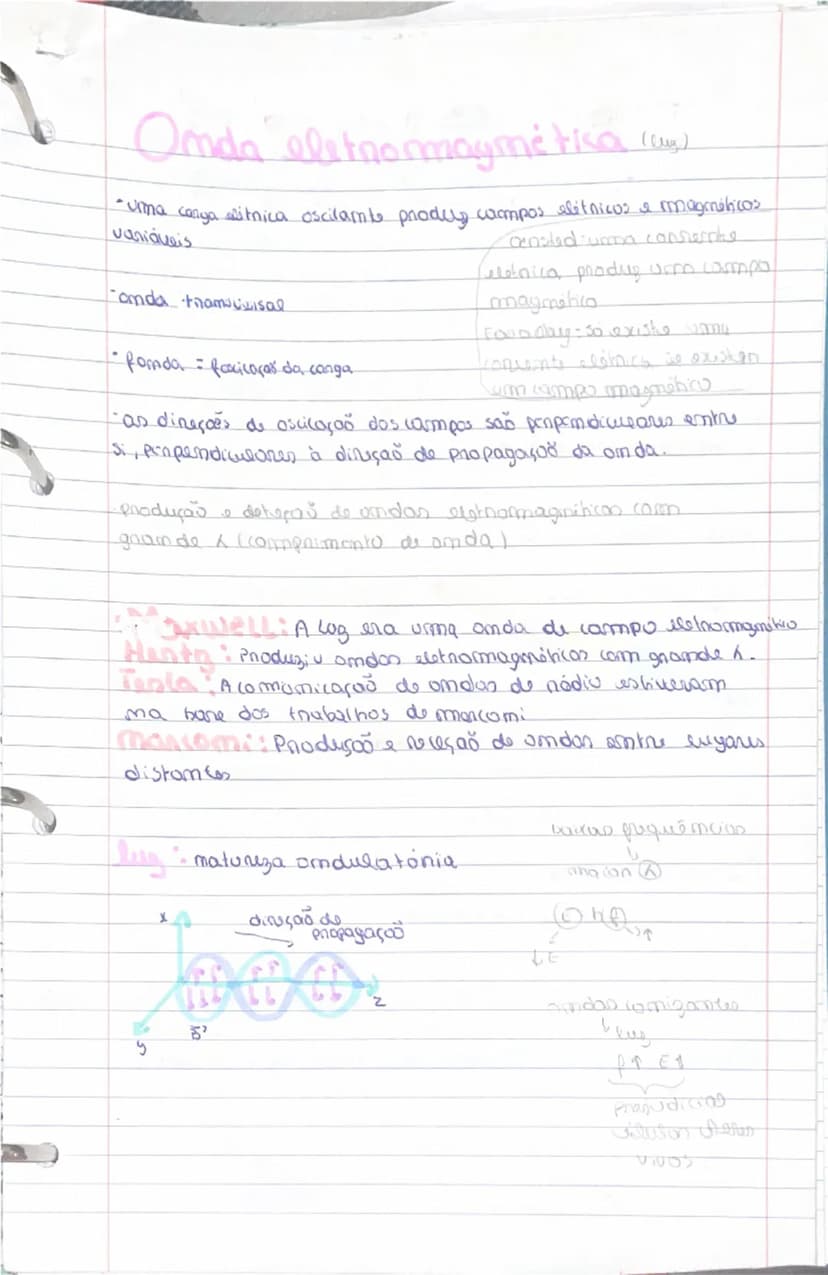 Onda eletromagnética (luz)
• uma carga elétrica oscilante produz campos elétricos e magnéticos
variáveis
oersted: uma corrente
elétrica, produz um campo
magnético
Faraday: só existe uma
corrente elétrica se existir
um campo magnético
• onda transversal
• fonda = foscilação da carga
• as direções de oscilação dos campos são perpendiculares entre
si, perpendiculares à direção de propagação da onda.
produção e deteção de ondas eletromagnéticas com
grande λ (comprimento de onda)
• Maxwell: A luz era uma onda de campo eletromagnético
Hertz: Produziu ondas eletromagnéticas com grande λ.
Tesla: A comunicação de ondas de rádio estiveram
na base dos trabalhos de marconi
marconi: Produção e receção de ondas entre lugares
distantes
baixas frequências
↓
maior λ
luz: natureza ondulatória
direção de
propagação
x
z
y
B
↓E
ondas ionizantes
↳ luz
f↑ E↑
prejudicial
vivos